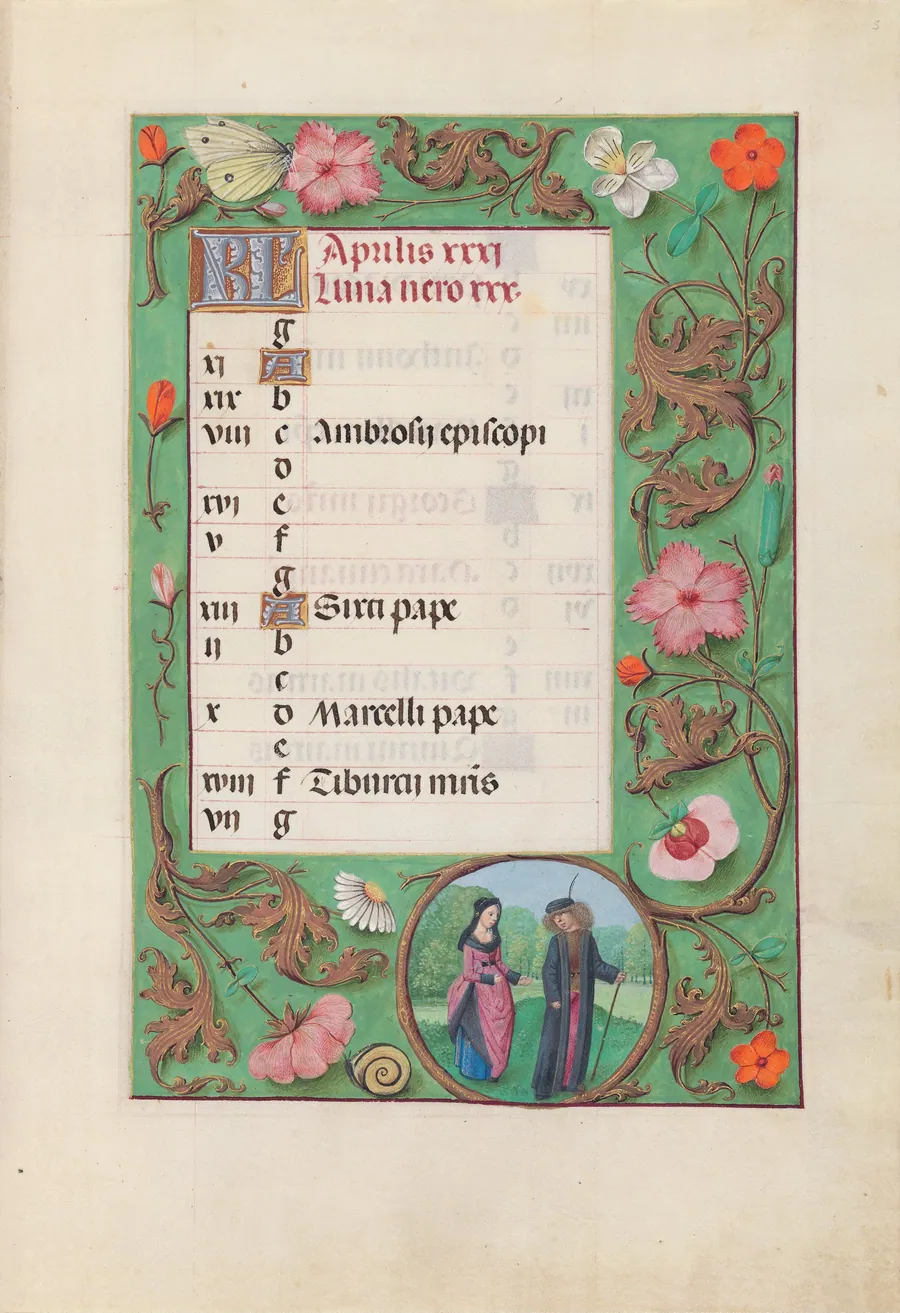 KL Aprilis xxxj
Luna vero xxx.
g
xj A
xix b
viij c Ambrosij episcopi
d
xvj e
v f
g
xiij A Sixti pape
ij b
c
x d Marcelli pape
e
xviij f Tiburcij mris
vij g